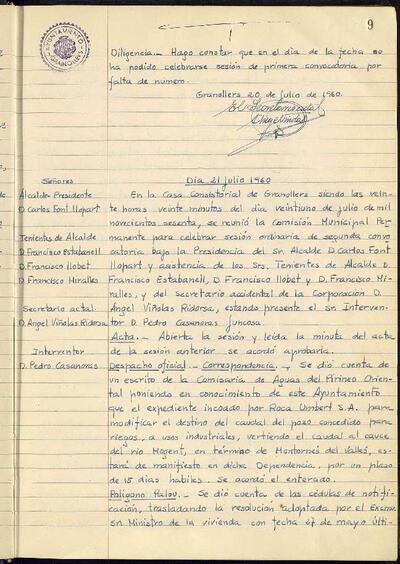 9
AYUNTAMIENTO
GRANOLLERS
Diligencia.- Hago constar que en el dia de la fecha no
ha podido celebrarse sesión de primera convocatoria por
falta de número.
Granollers 20 de julio de 1960.
El Secretario acctal.
Señores
Dia 21 julio 1960
Alcalde-Presidente
D. Carlos Font Llopart
Tenientes de Alcalde
D. Francisco Estabanell
D. Francisco Llobet
D. Francisco Miralles
Secretario actal.
D. Angel Viñolas Ridorsa
Interventor
D. Pedro Casanovas
En la Casa Consistorial de Granollers siendo las vein-
te horas veinte minutos del dia veintiuno de julio de mil
novecientos sesenta, se reunió la Comisión Municipal Per-
manente para celebrar sesión ordinaria de segunda convo
catoria bajo la Presidencia del Sr. Alcalde D. Carlos Font
Llopart y asistencia de los Srs. Tenientes de Alcalde D.
Francisco Estabanell, D. Francisco Llobet y D. Francisco Mi-
ralles, y del Secretario accidental de la Corporación D.
Angel Viñolas Ridorsa, estando presente el Sr. Interven-
tor D. Pedro Casanovas Juncosa.
Acta.- Abierta la sesión y leida la minuta del acta
de la sesión anterior se acordó aprobarla.
Despacho oficial.- Correspondencia.- Se dió cuenta de
un escrito de la Comisaria de Aguas del Pirineo Orien-
tal poniendo en conocimiento de este Ayuntamiento
que el expediente incoado por Roca Umbert S.A. para
modificar el destino del caudal del pozo concedido para
riegos, a usos industriales, vertiendo el caudal al cauce
del rio Mogent, en término de Montornés del Vallés, es-
tará de manifiesto en dicha Dependencia, por un plazo
de 15 dias hábiles. Se acordó el enterado.
Poligono Palou.- Se dió cuenta de las cédulas de notifi-
cación, trasladando la resolución adoptada por el Excmo.
Sr. Ministro de la vivienda con fecha 27 de mayo últi-